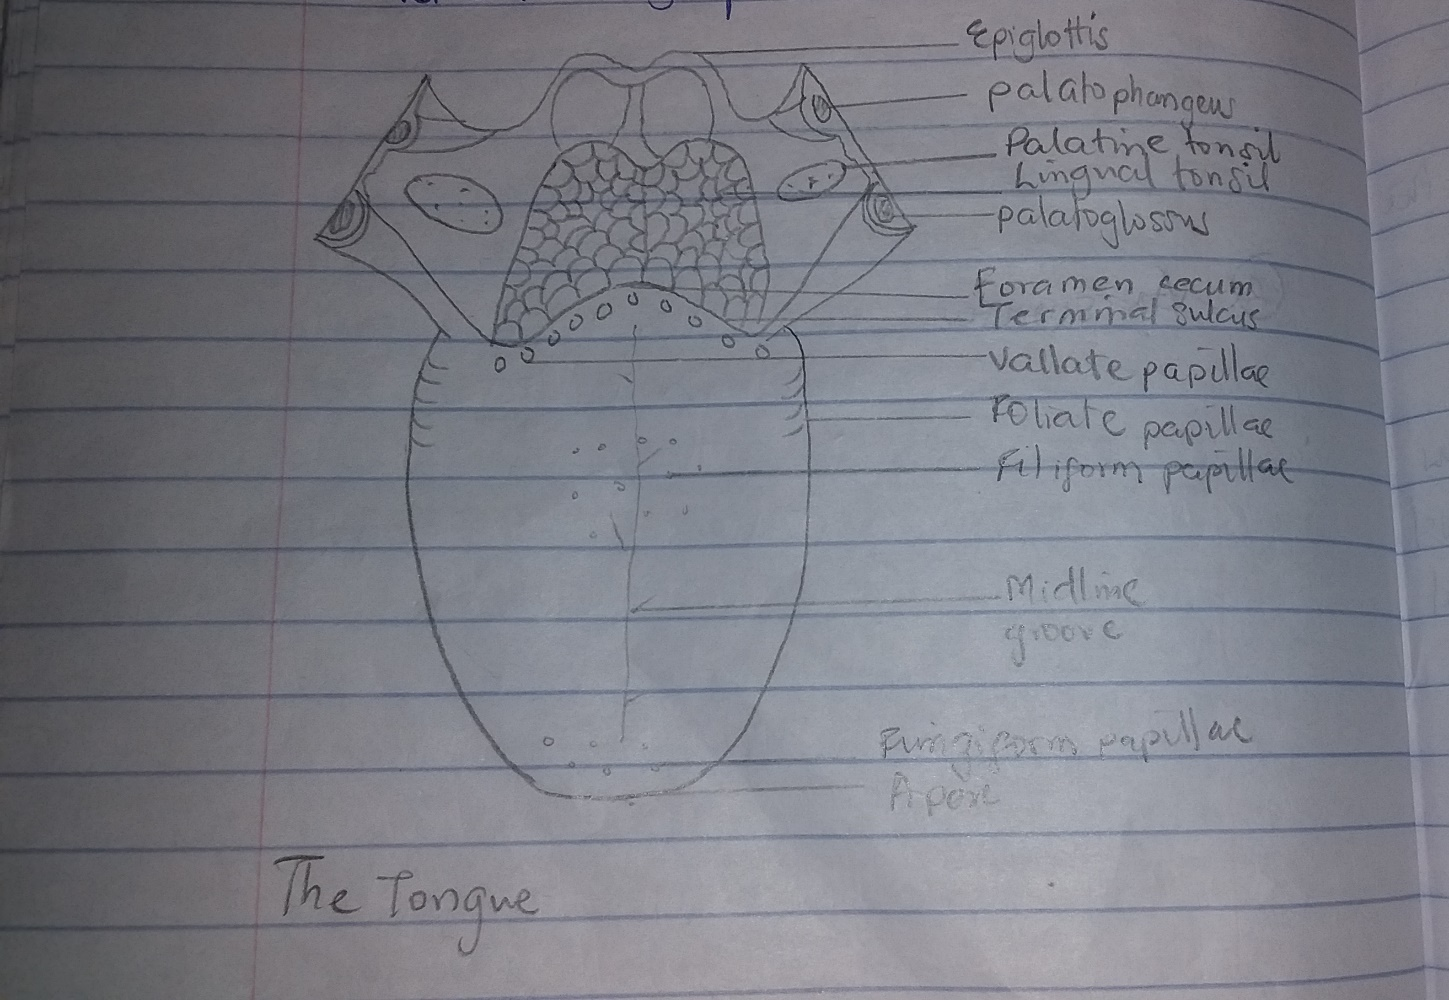 Epiglottis
palatophangeus
Palatine tonsil
Lingual tonsil
palatoglossus
Foramen cecum
Terminal sulcus
Vallate papillae
Foliate papillae
Filiform papillae
Midline
groove
Fungiform papillae
The Tongue